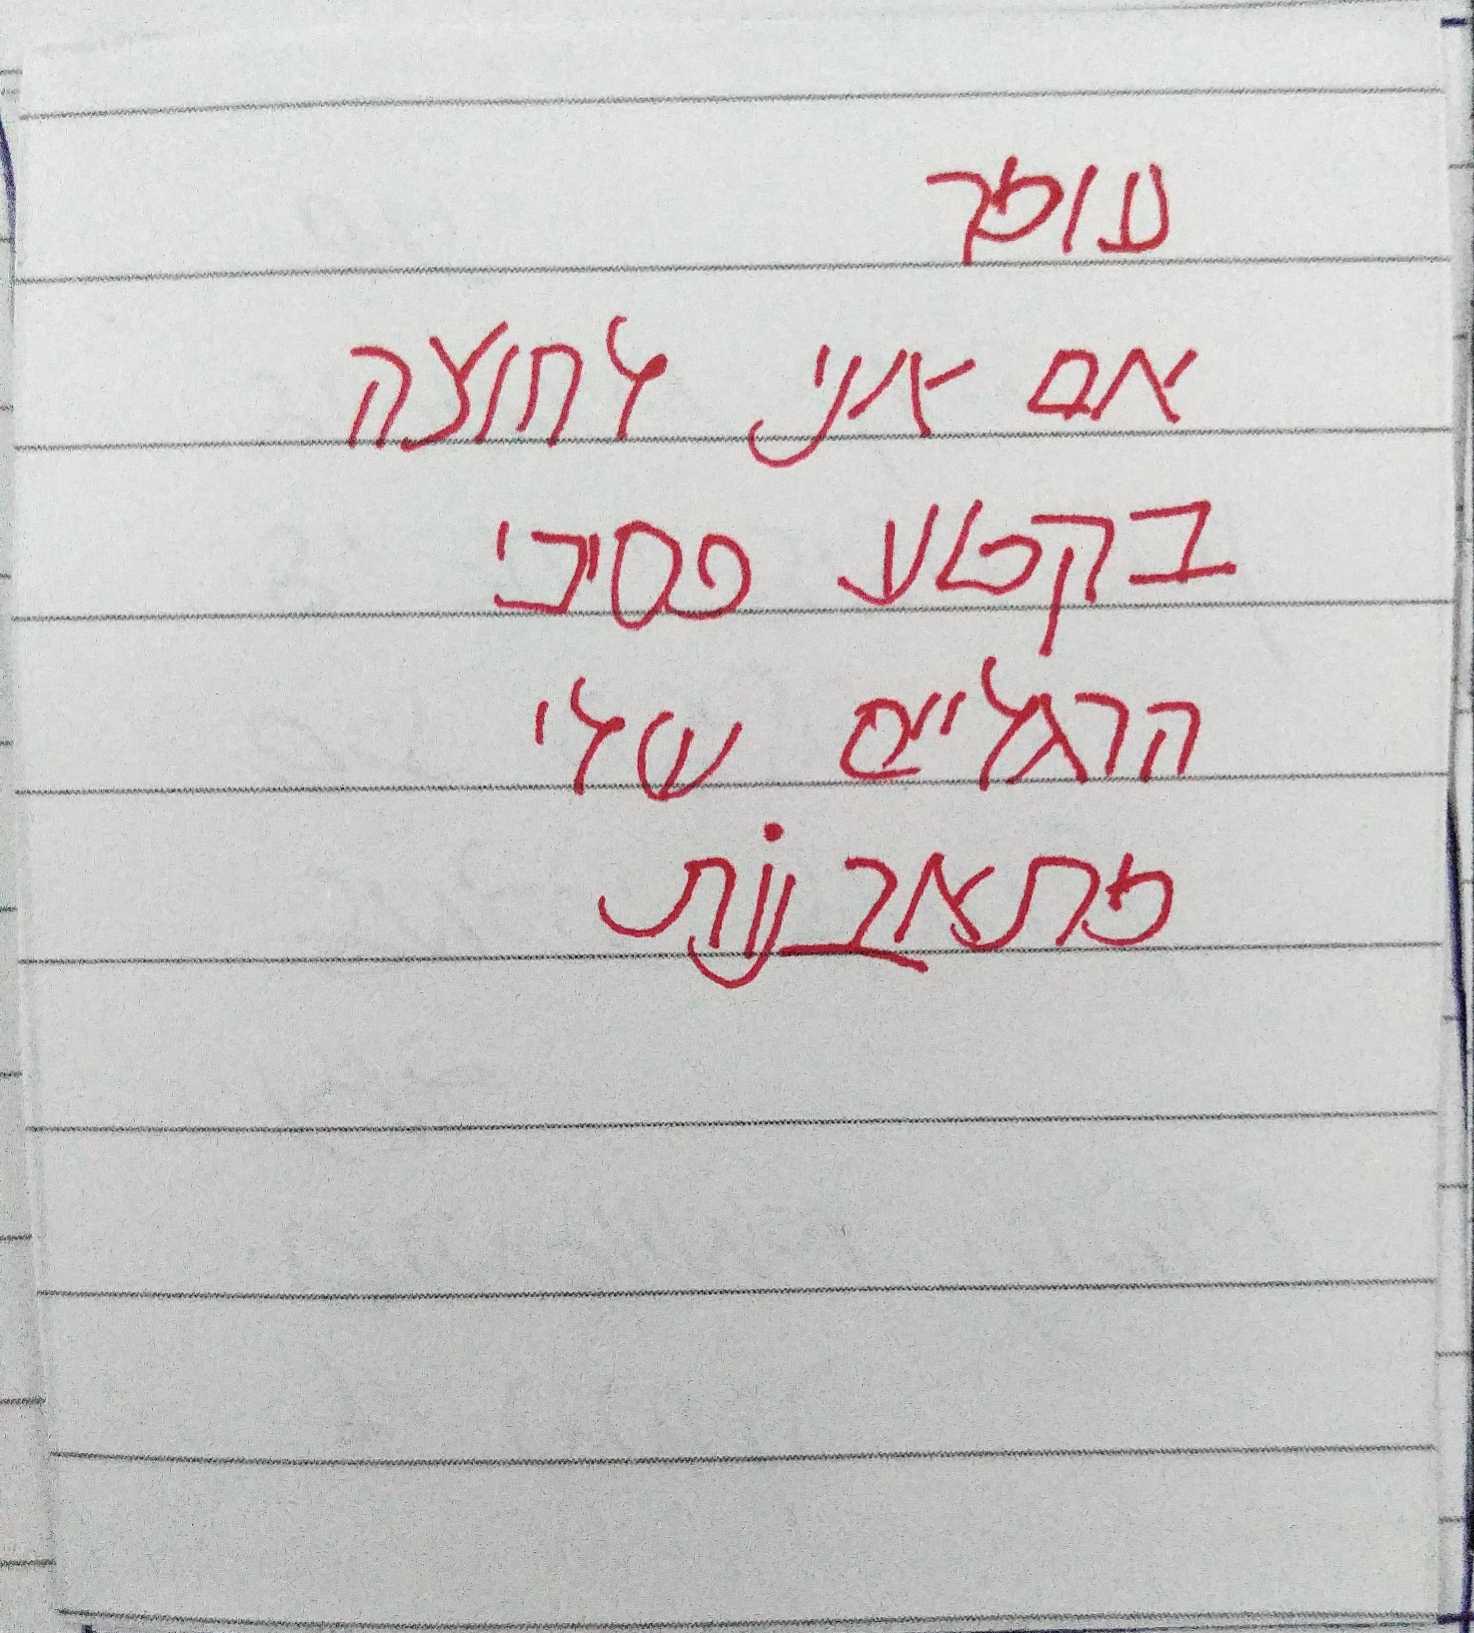 עומר
אם אני לחוצה
בקטע פסיבי
הרגליים שלי
מתאבנוֹת